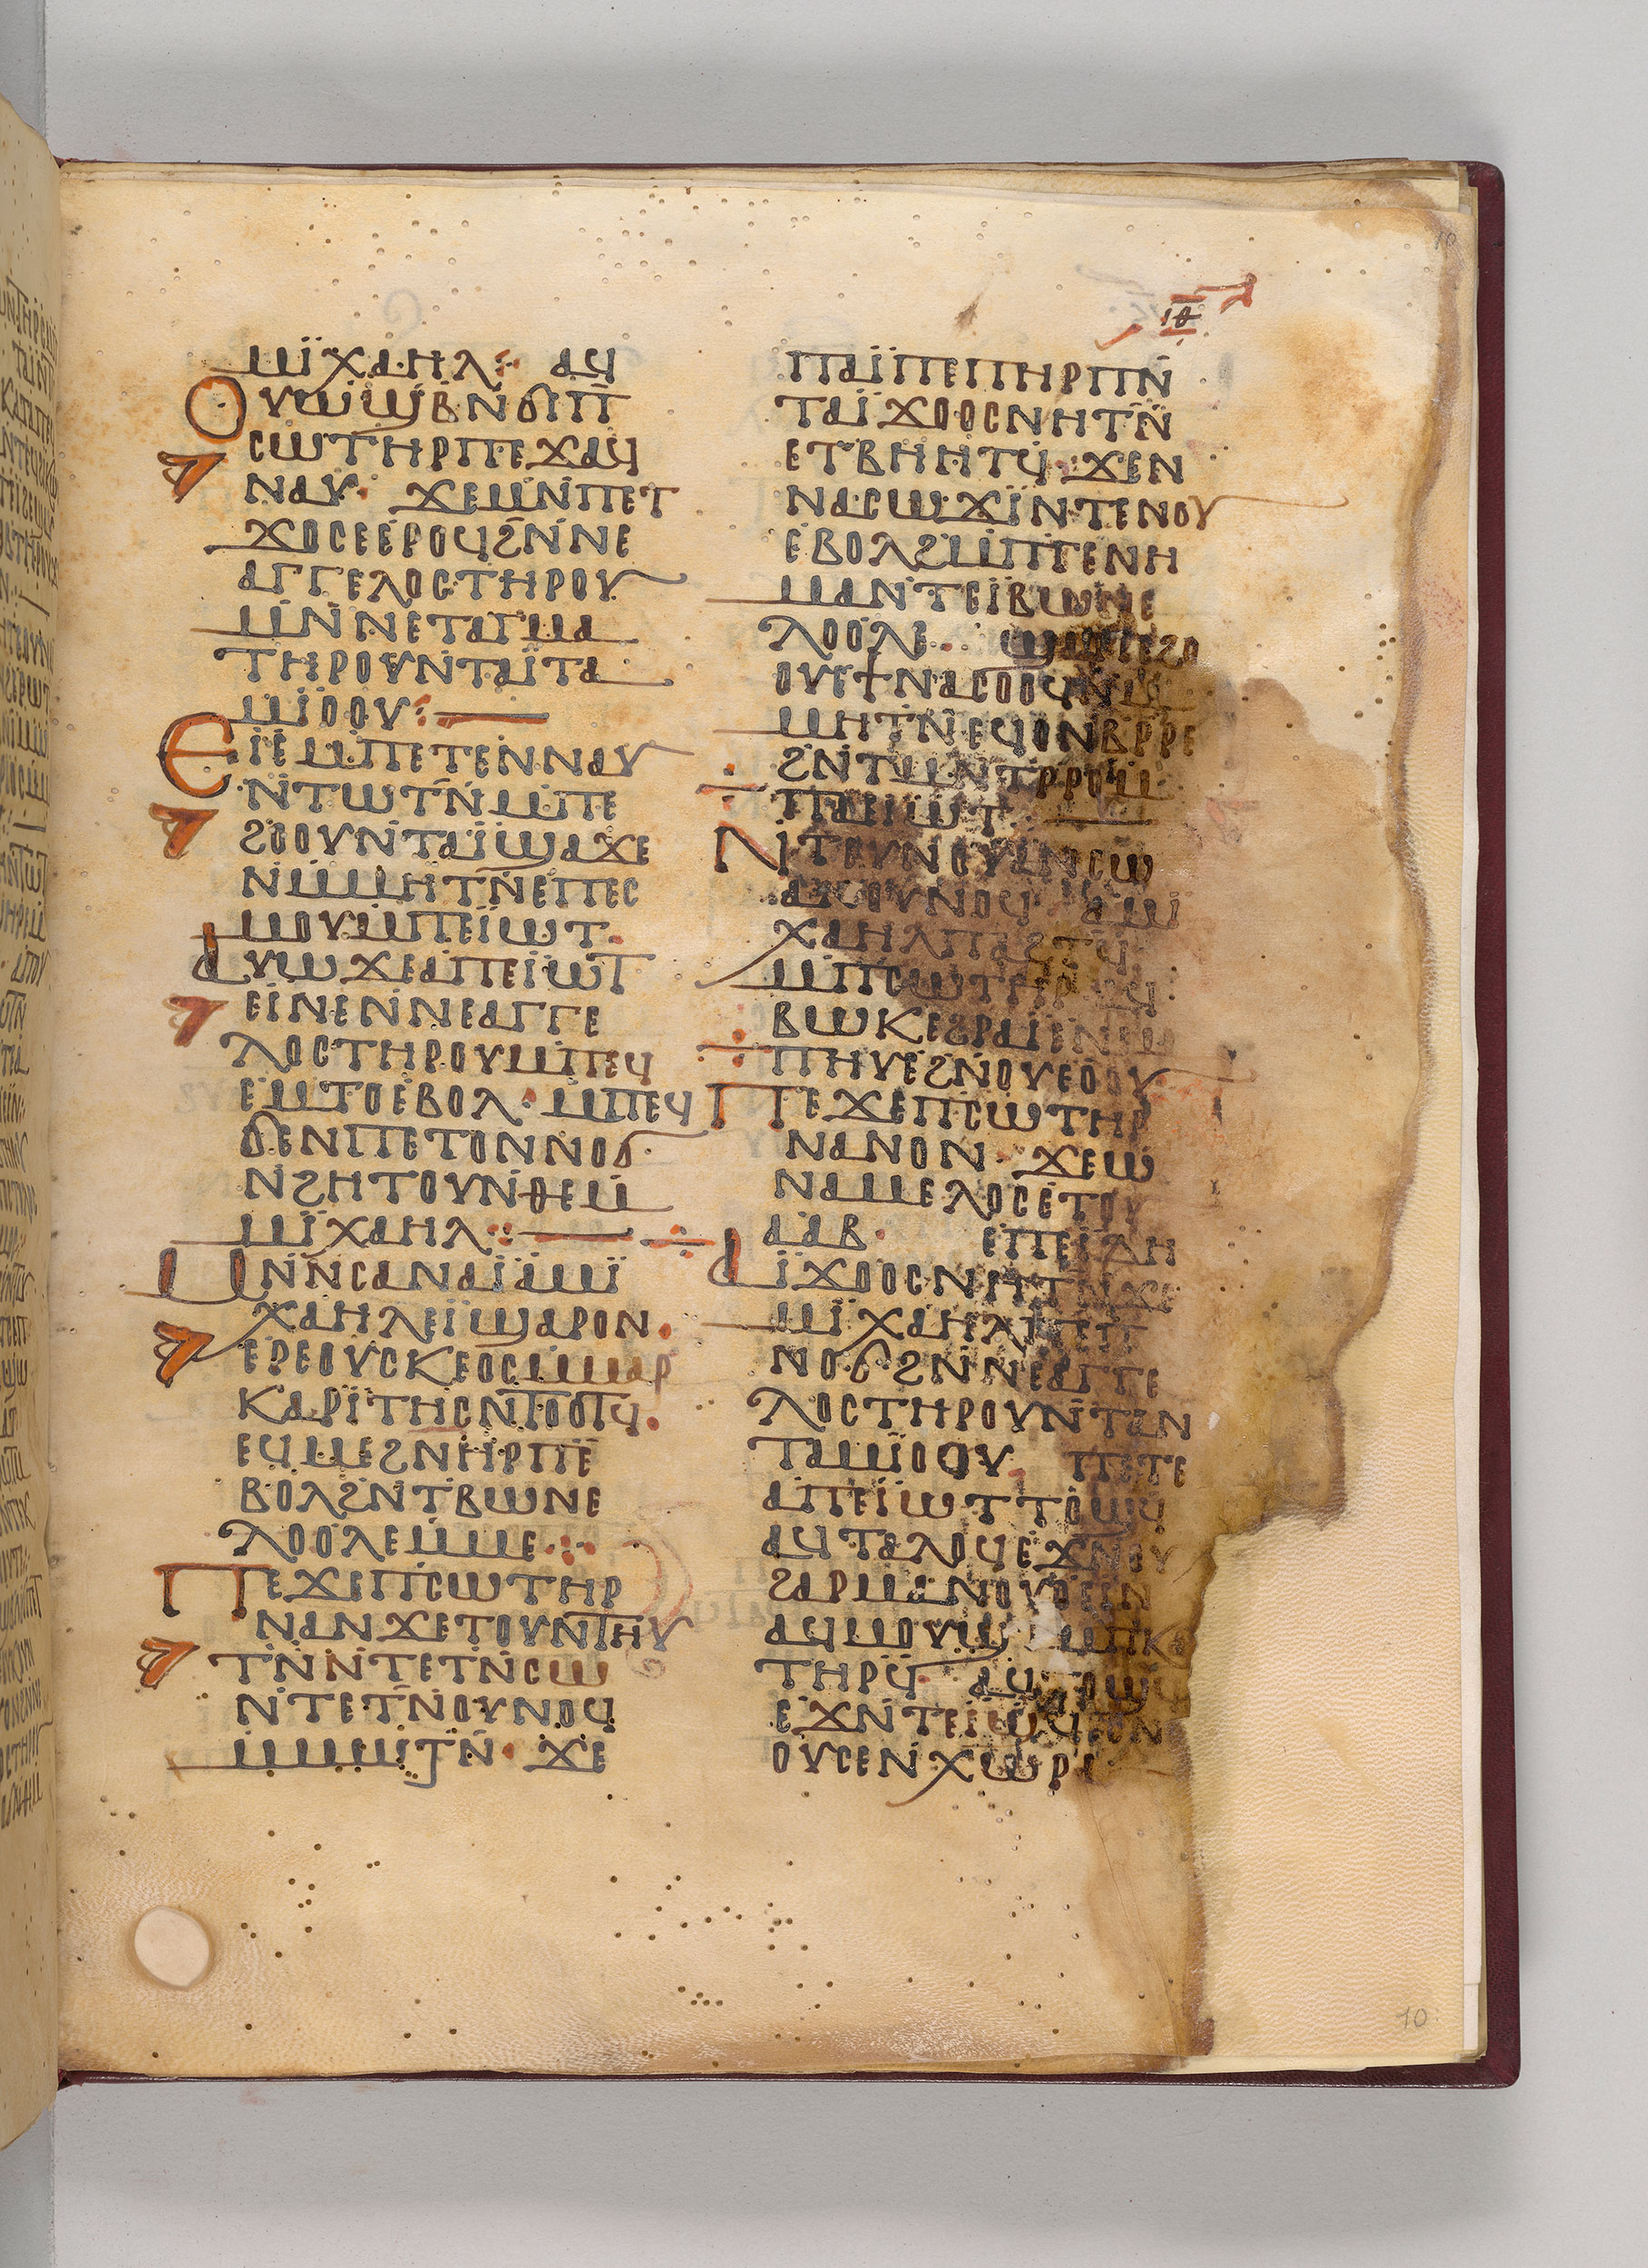 ⲓⲑ
ⲙⲓ̈ⲭⲁⲏⲗ: ⲁϥ
ⲟⲩⲱϣⲃⲛϭⲓⲡ
ⲥⲱⲧⲏⲣⲡⲉϫⲁϥ
ⲛⲁⲩ· ϫⲉⲙⲛ̇ⲡⲉⲧ
ϫⲟⲥⲉⲉⲣⲟϥϩⲛ̇ⲛⲉ
ⲁⲅⲅⲉⲗⲟⲥⲧⲏⲣⲟⲩ
ⲙⲛ̇ⲛⲉⲧⲁⲅⲙⲁ
ⲧⲏⲣⲟⲩⲛ̇ⲧⲁⲓ̈ⲧⲁ
ⲙⲓ̈ⲟⲟⲩ:
ⲉⲓ̈ⲉⲙ̇ⲡⲉⲧⲉⲛⲛⲁⲩ
ⲛ̇ⲧⲱⲧⲛ̄ⲙ̇ⲡⲉ
ϩⲟⲟⲩⲛ̇ⲧⲁⲓ̈ϣⲁϫⲉ
ⲛⲙ̇ⲙⲏⲧⲛ̄ⲉⲡⲉⲥ
ⲙⲟⲩⲙ̇ⲡⲉⲓ̈ⲱⲧ·
ⲁⲩⲱϫⲉⲁⲡⲉⲓ̈ⲱⲧ
ⲉⲓⲛⲉⲛ̇ⲛⲉⲁⲅⲅⲉ
ⲗⲟⲥⲧⲏⲣⲟⲩⲙ̇ⲡⲉϥ
ⲉⲙⲧⲟⲉⲃⲟⲗ· ⲙ̇ⲡⲉϥ
ϭⲉⲛⲡⲉⲧⲟⲛⲛⲟϭ
ⲛ̇ϩⲏⲧⲟⲩⲛ̇ⲑⲉⲙ̇
ⲙⲓ̈ⲭⲁⲏⲗ:
ⲙⲛ̇ⲛ̇ⲥⲁⲛⲁⲓ̈ⲁⲙⲓ̈
ⲭⲁⲏⲗⲉⲓ̈ϣⲁⲣⲟⲛ·
ⲉⲣⲉⲟⲩⲥⲕⲉⲟⲥⲙ̇ⲙⲁⲣ
ⲕⲁⲣⲓ̈ⲧⲏⲥⲛ̇ⲧⲟⲟⲧϥ·
ⲉϥⲙⲉϩⲛ̇ⲏⲣⲡⲉ̄
ⲃⲟⲗϩⲛ̇ⲧⲃⲱⲛⲉ
ⲗⲟⲟⲗⲉⲙ̇ⲙⲉ:
ⲡⲉϫⲉⲡⲥⲱⲧⲏⲣ
ⲛⲁⲛϫⲉⲧⲟⲩⲛⲧⲏⲩ
ⲧⲛ̇ⲛ̇ⲧⲉⲧⲛ̇ⲥⲱ
ⲛ̇ⲧⲉⲧⲛ̄ⲟⲩⲛⲟϥ
ⲙ̇ⲙⲱⲧⲛ̄· ϫⲉ
ⲡⲁⲓ̈ⲡⲉⲡⲏⲣⲡⲛ̇
ⲧⲁⲓ̈ϫⲟⲟⲥⲛⲏⲧⲛ̄
ⲉⲧⲃⲏⲏⲧϥ: ϫⲉⲛ
ⲛⲁⲥⲱϫⲓ̈ⲛⲧⲉⲛⲟⲩ
ⲉⲃⲟⲗϩⲙ̇ⲡⲅⲉⲛⲏ
ⲙⲁⲛ̇ⲧⲉⲓ̈ⲃⲱⲛⲉ
ⲗⲟⲟⲗⲉ· ϣⲁⲡⲉϩⲟ
ⲟⲩⲉϯⲛⲁⲥⲟⲟϥⲛⲙ̇
ⲙⲏⲧⲛ̇ⲉϥⲟⲛ̇ⲃⲣⲣⲉ
ϩⲛ̇ⲧⲙⲛ̇ⲧⲣⲣⲟⲙ̇
ⲡⲁⲉⲓⲱⲧ·
ⲛ̇ⲧⲟⲩⲛⲟⲩⲁⲛⲥⲱ
ⲁⲛⲟⲩⲛⲟϥ ⲁⲙⲓ̈
ⲭⲁⲏⲗⲡⲁϩⲧϥ̄
ⲙ̇ⲡⲥⲱⲧⲏⲣ ⲁϥ
ⲃⲱⲕⲉϩⲣⲁⲓ̈ⲉⲛ̇ⲙ̇
ⲡⲏⲩⲉϩⲛ̇ⲟⲩⲉⲟⲟⲩ
ⲡⲉϫⲉⲡⲥⲱⲧⲏⲣ
ⲛⲁⲛⲟⲛ· ϫⲉⲱ
ⲛⲁⲙⲉⲗⲟⲥⲉⲧⲟⲩ
ⲁⲁⲃ· ⲉⲡⲉⲓ̈ⲇⲏ
ⲁⲓ̈ϫⲟⲟⲥⲛⲏⲧⲛ̇ϫⲉ
ⲙⲓ̈ⲭⲁⲏⲗⲡⲉⲧ
ⲛⲟϭϩⲛ̇ⲛⲉⲁⲅⲅⲉ
ⲗⲟⲥⲧⲏⲣⲟⲩⲛ̇ⲧⲁⲛ
ⲧⲁⲙⲓ̈ⲟⲟⲩ ⲡⲉⲧⲉ
ⲁⲡⲉⲓ̈ⲱⲧⲧⲟϣϥ
ⲁϥⲧⲁⲗⲟϥⲉϫⲛⲟⲩ
ϩⲁⲣⲙⲁⲛⲟⲩⲟⲉⲓⲛ
ⲁϥⲙⲟⲩϣⲧ̄ ⲙ̇ⲡⲕ
ⲧⲏⲣϥ̄ ⲁϥⲧⲟϣϥ
ⲉϫⲛ̇ⲧⲉⲓ̈ⲱϥⲉⲟⲛ
ⲟⲩⲥⲉⲛⲭⲱⲣⲁ